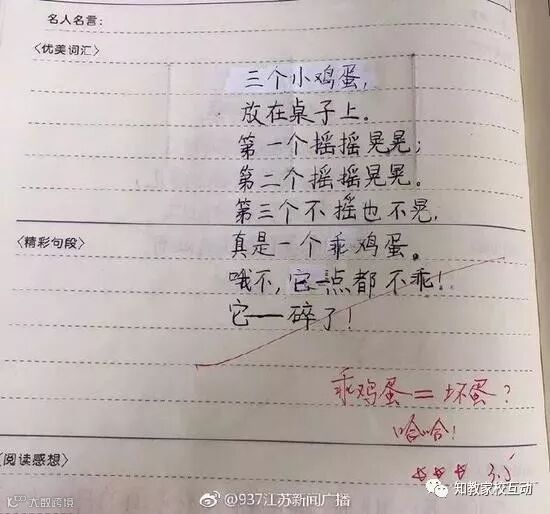 名人名言:
〈优美词汇〉
三个小鸡蛋,
放在桌子上。
第一个摇摇晃晃;
第二个摇摇晃晃。
第三个不摇也不晃,
〈精彩句段〉
真是一个乖鸡蛋。
哦不,它一点都不乖!
它——碎了!
乖鸡蛋=坏蛋?
哈哈!
〈阅读感想〉
@937江苏新闻广播
知教家校互动
大数跨境